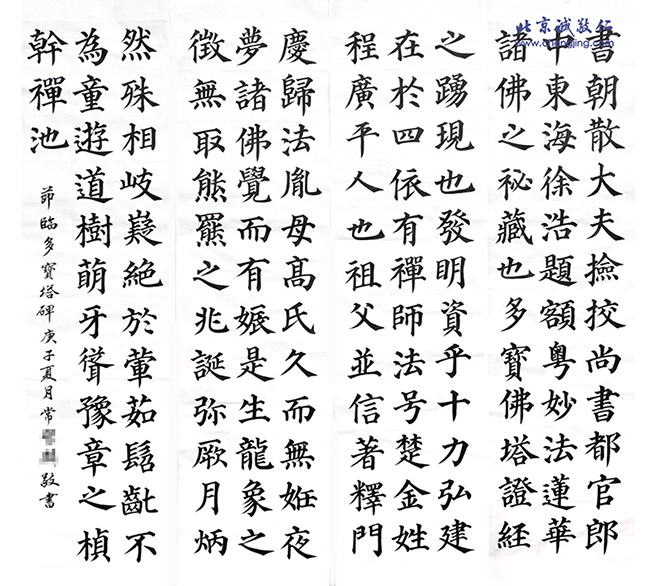 北京诚敬行
www.chengjing.com
書朝散大夫撿挍尚書都官郎
中東海徐浩題額粵妙法蓮華
諸佛之祕藏也多寶佛塔證経
之踴現也發明資乎十力弘建
在於四依有禪師法号楚金姓
程廣平人也祖父並信著釋門
慶歸法胤母髙氏久而無姙夜
夢諸佛覺而有娠是生龍象之
徴無取熊羆之兆誕弥厥月炳
然殊相岐嶷絶於葷茹髫齔不
為童遊道樹萌牙聳豫章之楨
幹禪池
節臨多寶塔碑庚子夏月常敬書